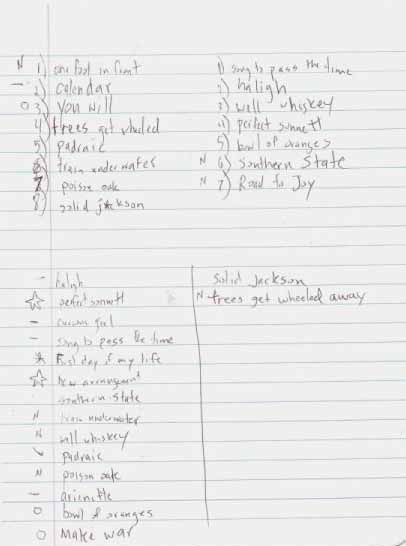 N 1) one foot in front
- 2) calendar
O 3) you will
4) trees get wheeled
5) padraic
6) train underwater
7) poison oak
8) solid jackson
1) song to pass the time
2) haligh
3) well whiskey
4) perfect sonnett
5) bowl of oranges
N 6) Southern State
N 7) Road to Joy
- haligh
☆ perfect sonnett
- curious girl
- song to pass the time
* First day of my life
☆ new arrangement
southern State
N train underwater
N well whiskey
padraic
N poison oak
- arienette
O bowl of oranges
O Make war
Solid Jackson
N trees get wheeled away